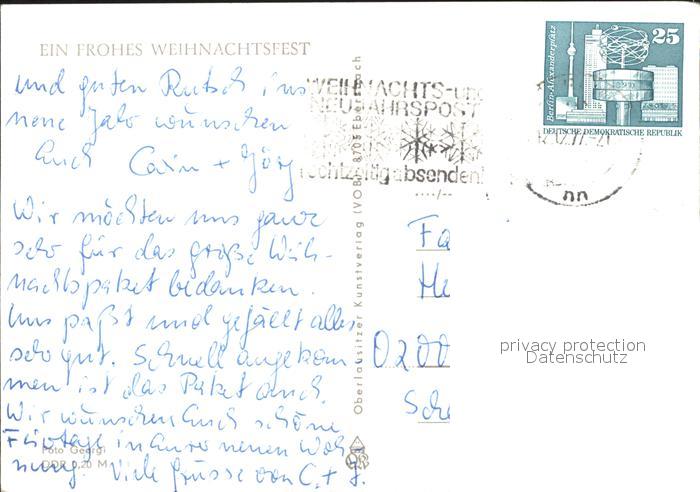 EIN FROHES WEIHNACHTSFEST
und guten Rutsch ins
neue Jahr wünschen
Euch Carin + Jörg
Wir möchten uns ganz
sehr für das große Weih-
nachtspaket bedanken.
Uns paßt und gefällt alles
sehr gut. Schnell angekom
men ist das Paket auch.
Wir wünschen Euch schöne
Feiertage in Eurer neuen Woh
nung. Viele Grüsse von C. + J.
Foto Georgi
DDR 0,20 M
Oberlausitzer Kunstverlag (VOB) 8705 Ebersbach
WEIHNACHTS-und
NEUJAHRSPOST
rechtzeitig absenden!
25
Berlin-Alexanderplatz
DEUTSCHE DEMOKRATISCHE REPUBLIK
12.77-21
nn
Fa
He
0200
Sch
privacy protection
Datenschutz